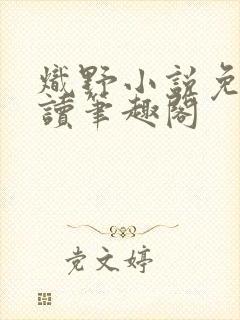 熾野小說免
讀筆趣閣
党文婷